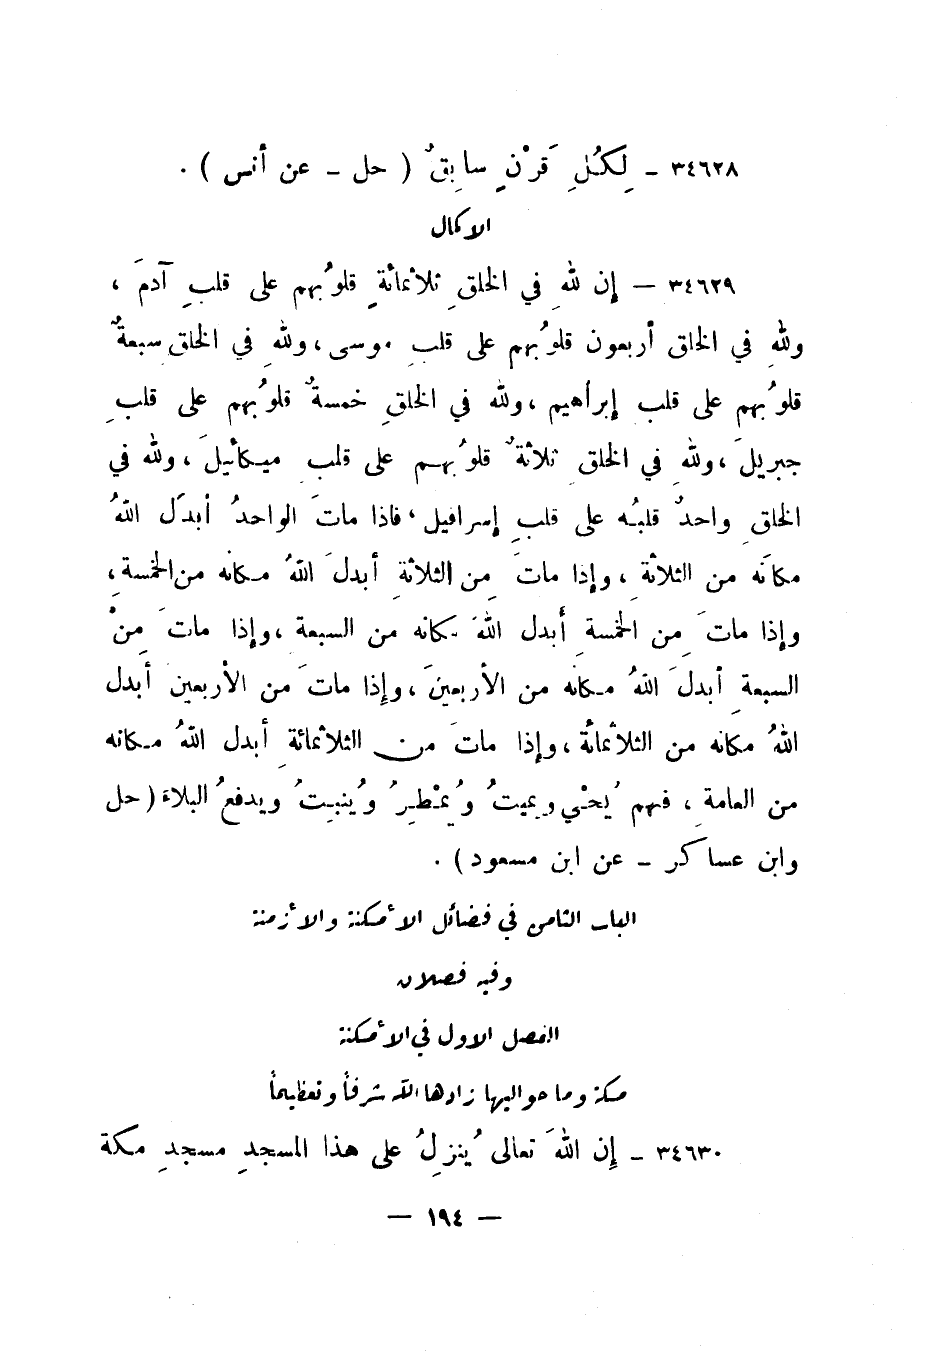 ٣٤٦٢٨ - لِكُلِّ قَرْنٍ سابِقٌ ( حل - عن أنس ) .
الاكمال
٣٤٦٢٩ - إن للهِ في الخلقِ ثلاثمائةٍ قلوبُهم على قلبِ آدمَ ،
وللهِ في الخلق أربعون قلوبُهم على قلبِ موسى ، وللهِ في الخلق سبعةٌ
قلوبُهم على قلب إبراهيم ، ولله في الخلقِ خمسةٌ قلوبُهم على قلبِ
جبريلَ ، وللهِ في الخلقِ ثلاثةٌ قلوبُهم على قلبِ ميكائيلَ ، ولله في
الخلقِ واحدٌ قلبُه على قلبِ إسرافيل ، فاذا ماتَ الواحدُ أبدلَ اللهُ
مكانَه من الثلاثةِ ، وإذا ماتَ مِن الثلاثةِ أبدلَ اللهُ مكانه من الخمسةِ ،
وإذا ماتَ مِن الخمسةِ أبدل اللهُ مكانه من السبعة ، وإذا ماتَ مِنْ
السبعةِ أبدلَ اللهُ مكانه من الأربعينَ ، وإذا ماتَ من الأربعين أبدل
اللهُ مكانه من الثلاثمائة ، وإذا ماتَ من الثلاثمائةِ أبدل اللهُ مكانه
من العامةِ ، فبهم يُحْيي ويميتُ ويُمْطِرُ ويُنبِتُ ويدفعُ البلاءَ ( حل
وابن عساكر - عن ابن مسعود ) .
الباب الثامن في فضائل الأمكنة والأزمنة
وفيه فصلان
الفصل الاول في الأمكنة
مكة وما حواليها زادها الله شرفاً وتعظيماً
٣٤٦٣٠ - إن اللهَ تعالى يُنزِلُ على هذا المسجدِ مسجدِ مكة
— ١٩٤ —